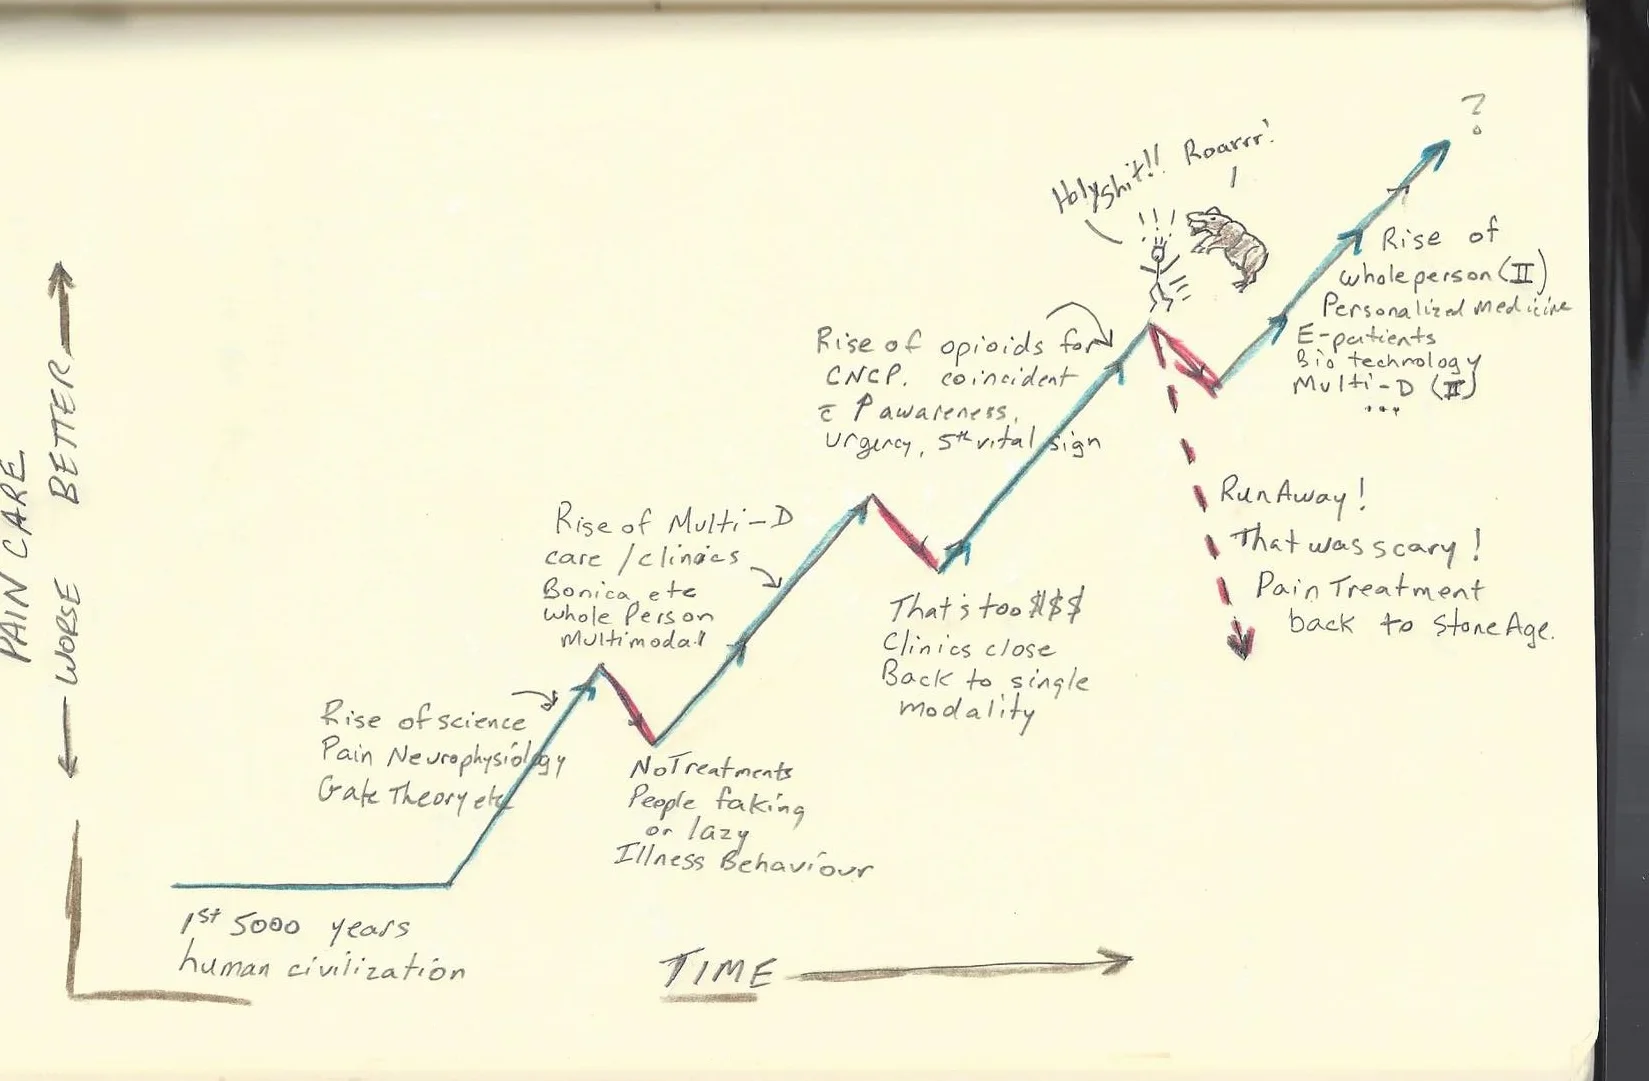 PAIN CARE
← WORSE BETTER →
1st 5000 years
human civilization
TIME
Rise of science
Pain Neurophysiology
Gate Theory etc
No Treatments
People faking
or lazy
Illness Behaviour
Rise of Multi-D
care / clinics
Bonica etc
Whole Person
Multimodal
That's too $$$
Clinics close
Back to single
modality
Rise of opioids for
CNCP. coincident
c̄ ↑ awareness,
urgency, 5th vital sign
Holy shit!!
Roarrr!
Run Away!
That was scary!
Pain Treatment
back to Stone Age.
?
Rise of
whole person (II)
Personalized Medicine
E-patients
Bio technology
Multi-D (II)
...